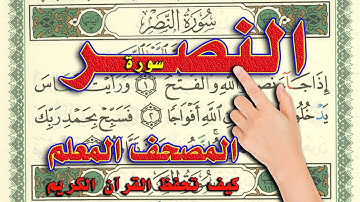 سُورَةُ النَّصْرِ
النصر
سورة
إِذَا جَآءَ نَصْرُ اللَّهِ وَالْفَتْحُ ١ وَرَأَيْتَ
يَدْخُلُونَ
اللَّهِ أَفْوَاجًا ٢ فَسَبِّحْ بِحَمْدِ رَبِّكَ
المصحف المعلم
كيف تحفظ القرآن الكريم